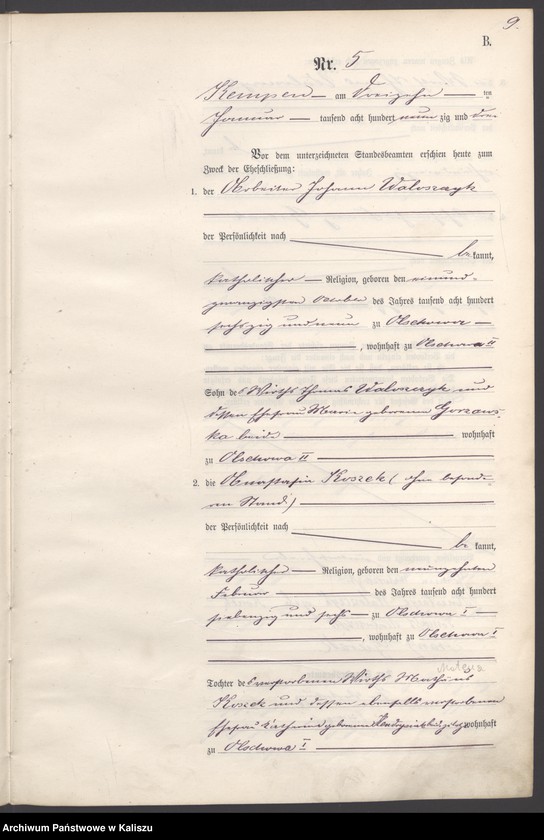 9.
B.
Nr. 5
Kempen am Dreizehn ten
Januar tausend acht hundert neun zig und drei
Vor dem unterzeichneten Standesbeamten erschien heute zum
Zweck der Eheschließung:
1. der Arbeiter Johann Waloszczyk
der Persönlichkeit nach
be kannt,
katholischer Religion, geboren den einund-
zwanzigsten October des Jahres tausend acht hundert
sechszig und neun zu Olschowa
, wohnhaft zu Olschowa II
Sohn des Wirths Thomas Waloszczyk und
dessen Ehefrau Marie geborenen Gorzaws-
ka beide wohnhaft
zu Olschowa II
2. die Anastasia Koszek (ohne besonde-
ren Stand.)
der Persönlichkeit nach
be kannt,
katholischer Religion, geboren den neunzehnten
Februar des Jahres tausend acht hundert
siebenzig und sechs zu Olschowa I
, wohnhaft zu Olschowa I
Tochter des verstorbenen Wirths Matheus
Koszek und dessen ebenfalls verstorbenen
Ehefrau Katharina geborenen wohnhaft
zu Olschowa I
Archiwum Państwowe w Kaliszu